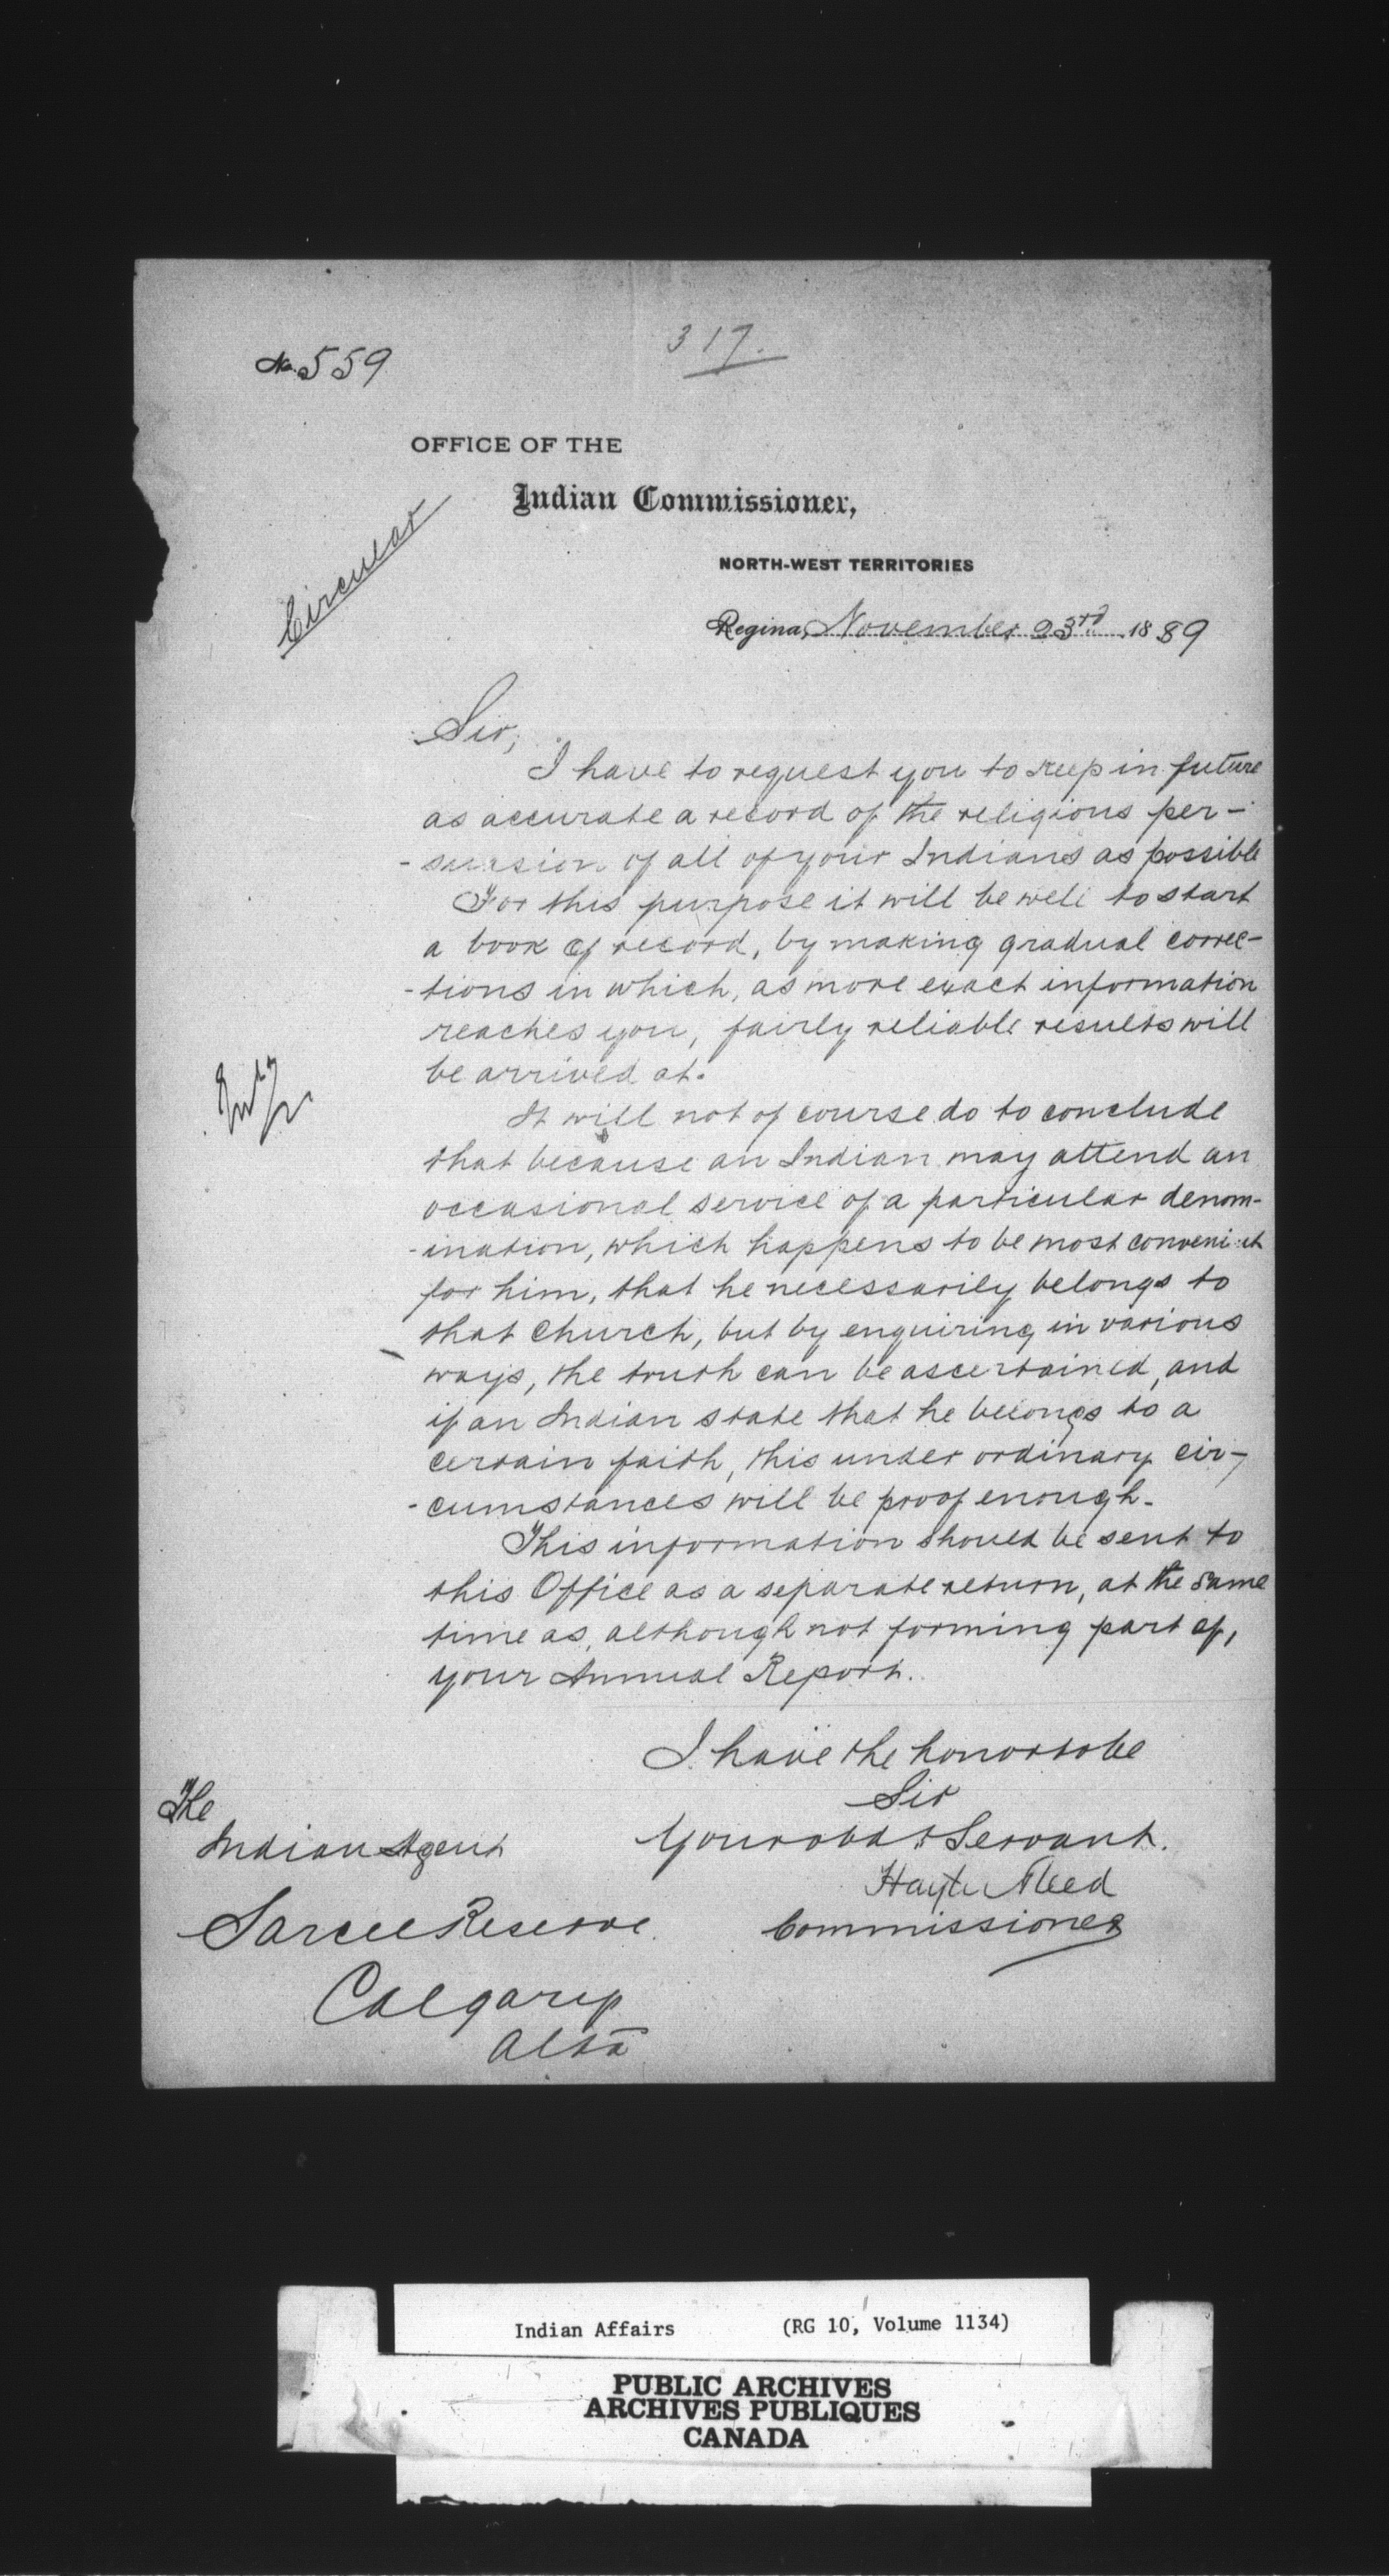 317.
No. 559
OFFICE OF THE
Indian Commissioner,
NORTH-WEST TERRITORIES
Circular
Regina, November 23rd 1889
Sir,
I have to request you to keep in future
as accurate a record of the religious per-
-suasion of all of your Indians as possible
For this purpose it will be well to start
a book of record, by making gradual correc-
-tions in which, as more exact information
reaches you, fairly reliable results will
be arrived at.
It will not of course do to conclude
that because an Indian may attend an
occasional service of a particular denom-
-ination, which happens to be most convenient
for him, that he necessarily belongs to
that Church, but by enquiring in various
ways, the truth can be ascertained, and
if an Indian state that he belongs to a
certain faith, this under ordinary cir-
-cumstances will be proof enough.
This information should be sent to
this Office as a separate return, at the same
time as, although not forming part of,
your Annual Report.
I have the honor to be
Sir
Your obdt Servant.
Hayter Reed
Commissioner
The
Indian Agent
Sarcee Reserve
Calgary
Alta
Indian Affairs (RG 10, Volume 1134)
PUBLIC ARCHIVES
ARCHIVES PUBLIQUES
CANADA